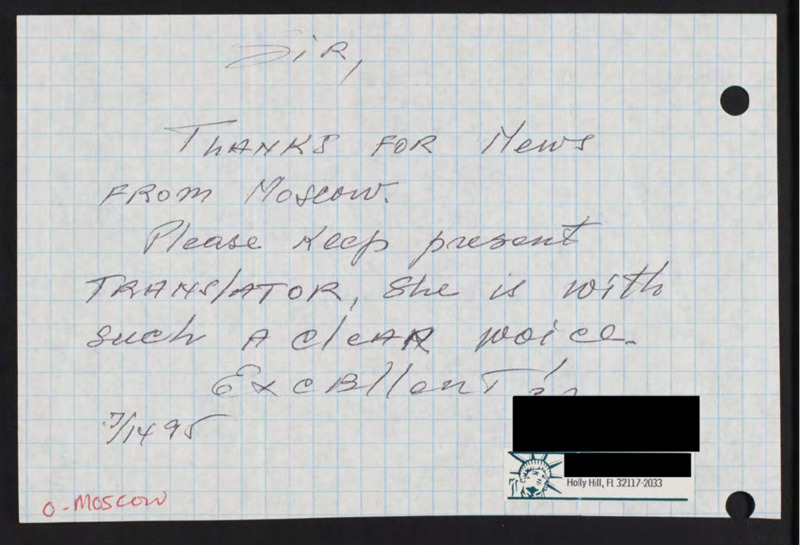 SIR,
THANKS FOR News
FROM Moscow.
Please Keep present
TRANSlATOR, She is with
such A cleAR voice.
ExcEllenT
7/14 95
Holly Hill, FL 32117-2033
O-MOSCOW